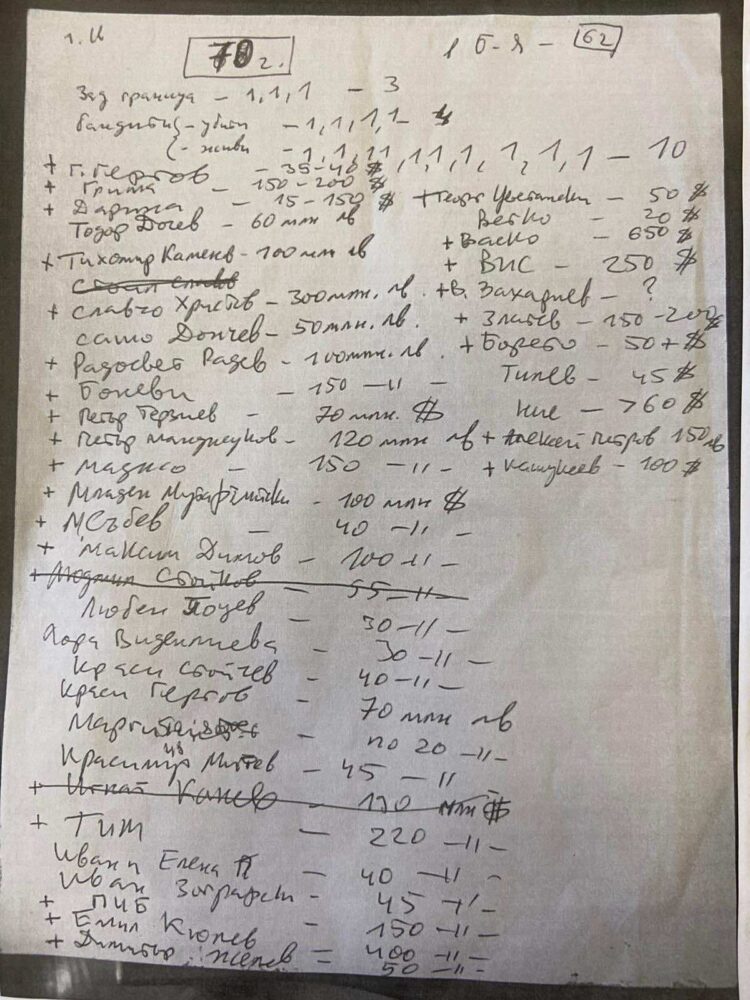 70 г.
1 Б-Я - 62
Зад граница - 1,1,1 - 3
бандити - убити - 1,1,1,1 - 4
- живи - 1,1,1,1,1,1,1,1,1,1 - 10
+ Г. Гергов - 35-40 $
+ Гриша - 150-200 $
+ Дарина - 15-150 $
Тодор Дочев - 60 млн лв
+ Тихомир Каменов - 100 млн лв
+ Славчо Христов - 300 млн. лв.
сашо Дончев - 50 млн. лв.
+ Радосвет Радев - 100 млн. лв
+ Боневи - 150 -//-
+ Петър Терзиев - 70 млн. $
+ Петър Манджуков - 120 млн лв
+ маджо - 150 -//-
+ Младен Мутафчийски - 100 млн $
+ М Събев - 40 -//-
+ Максим Димов - 100 -//-
+ Людмил Стойков - 55 -//-
Любен - 30 -//-
Лора Виденлиева - 30 -//-
Краси Стойчев - 40 -//-
Краси Гергов - 70 млн лв
Марги - по 20 -//-
Красимир Митев - 45 -//-
+ Игнат Канев - 130 млн $
+ ТИМ - 220 -//-
Иван и Елена П - 40 -//-
Иван Зографски - 45 -//-
+ ПИБ - 150 -//-
+ Емил Кюлев = 400 -//-
+ Димитър Желев 50 -//-
+ Георг Цветански - 50 $
Ветко - 20 $
+ Васко - 650 $
+ ВИС - 250 $
+ В. Захариев - ?
+ Златев - 150-200 $
+ Борето - 50 + $
Типев - 45 $
Ние - >60 $
+ Алексей Петров 150 лв
- 100 $